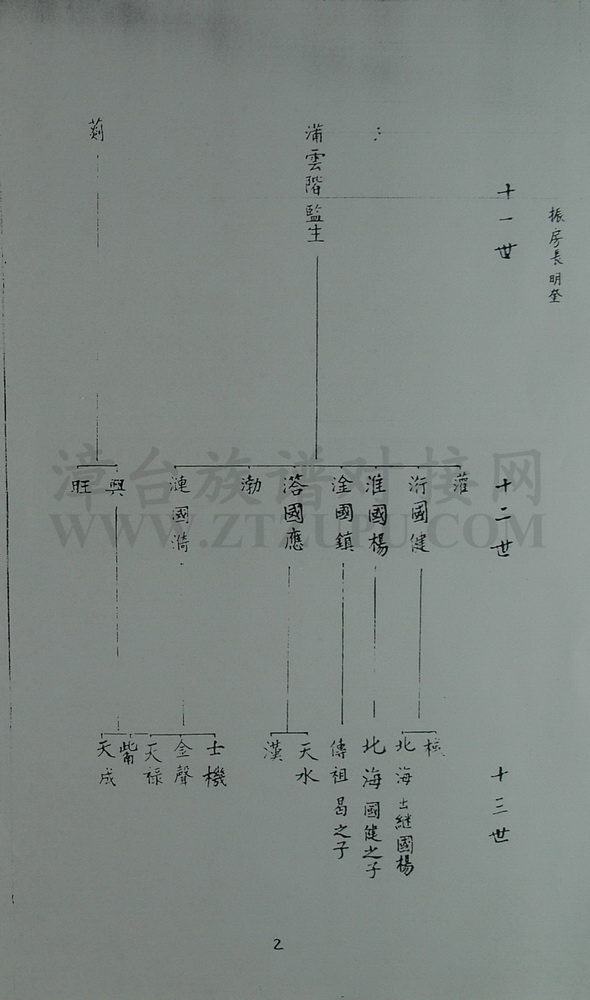 振房長明奎
十一世
蒲雲階監生
十二世
灌
洐國健
淮國楊
淦國鎮
溚國應
渤
漣國漪
興
旺
十三世
北海出継國楊
北海國健之子
傳祖昌之子
天水
漢
士機
金聲
天禄
天成
2
漳台族谱对接网
WWW.ZTZUPU.COM